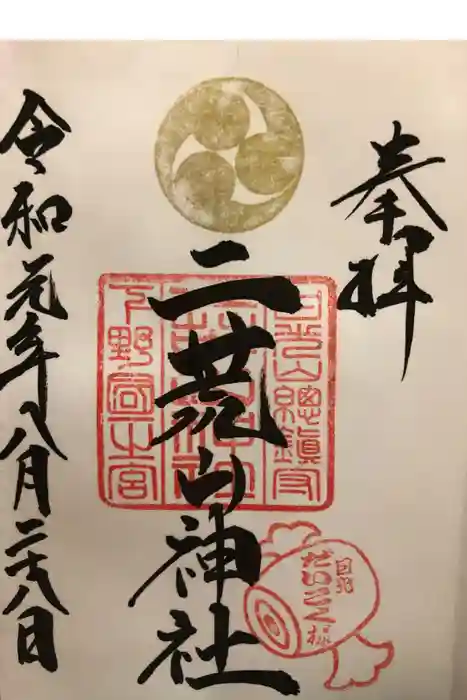 奉拝
二荒山神社
日光山總鎮守
下野國一之宮
日光
だいこく様
令和元年八月二十八日